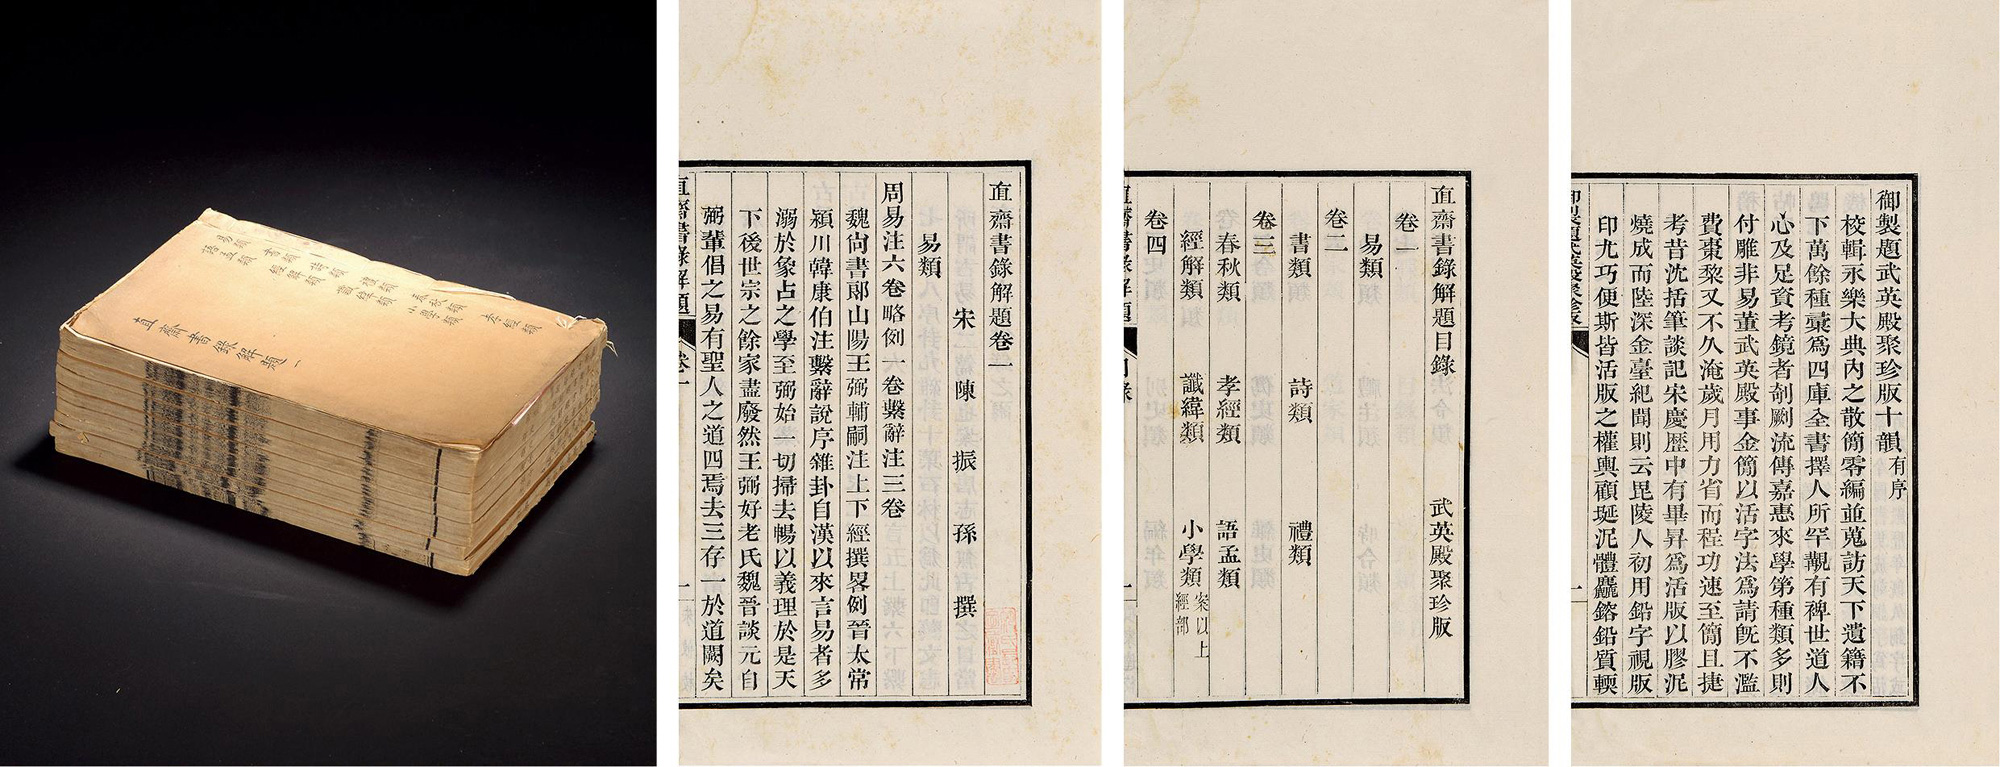 易類
書類
詩類
禮類
春秋類
孝經類
語孟類
經解類
讖緯類
小學類
直齋書錄解題 一
直齋書錄解題卷一
宋 陳振孫 撰
易類
周易注六卷略例一卷繫辭注三卷
魏尙書郎山陽王弼輔嗣注上下經撰畧例晉太常
潁川韓康伯注繫辭說序雜卦自漢以來言易者多
溺於象占之學至弼始一切掃去暢以義理於是天
下後世宗之餘家盡廢然王弼好老氏魏晉談元自
弼輩倡之易有聖人之道四焉去三存一於道闕矣
直齋書錄解題
卷一
一
直齋書錄解題目錄
武英殿聚珍版
卷一
易類
卷二
書類 詩類 禮類
卷三
春秋類 孝經類 語孟類
經解類 讖緯類 小學類 案以上經部
卷四
直齋書錄解題
目錄
一
御製題武英殿聚珍版十韻 有序
校輯永樂大典內之散簡零編並蒐訪天下遺籍不
下萬餘種彙爲四庫全書擇人所罕覯有裨世道人
心及足資考鏡者剞劂流傳嘉惠來學第種類多則
付雕非易董武英殿事金簡以活字法爲請旣不濫
費棗棃又不久淹歲月用力省而程功速至簡且捷
考昔沈括筆談記宋慶歷中有畢昇爲活版以膠泥
燒成而陸深金臺紀聞則云毘陵人初用鉛字視版
印尤巧便斯皆活版之權輿顧埏泥體麤鎔鉛質輭
御製題武英殿聚珍版
一